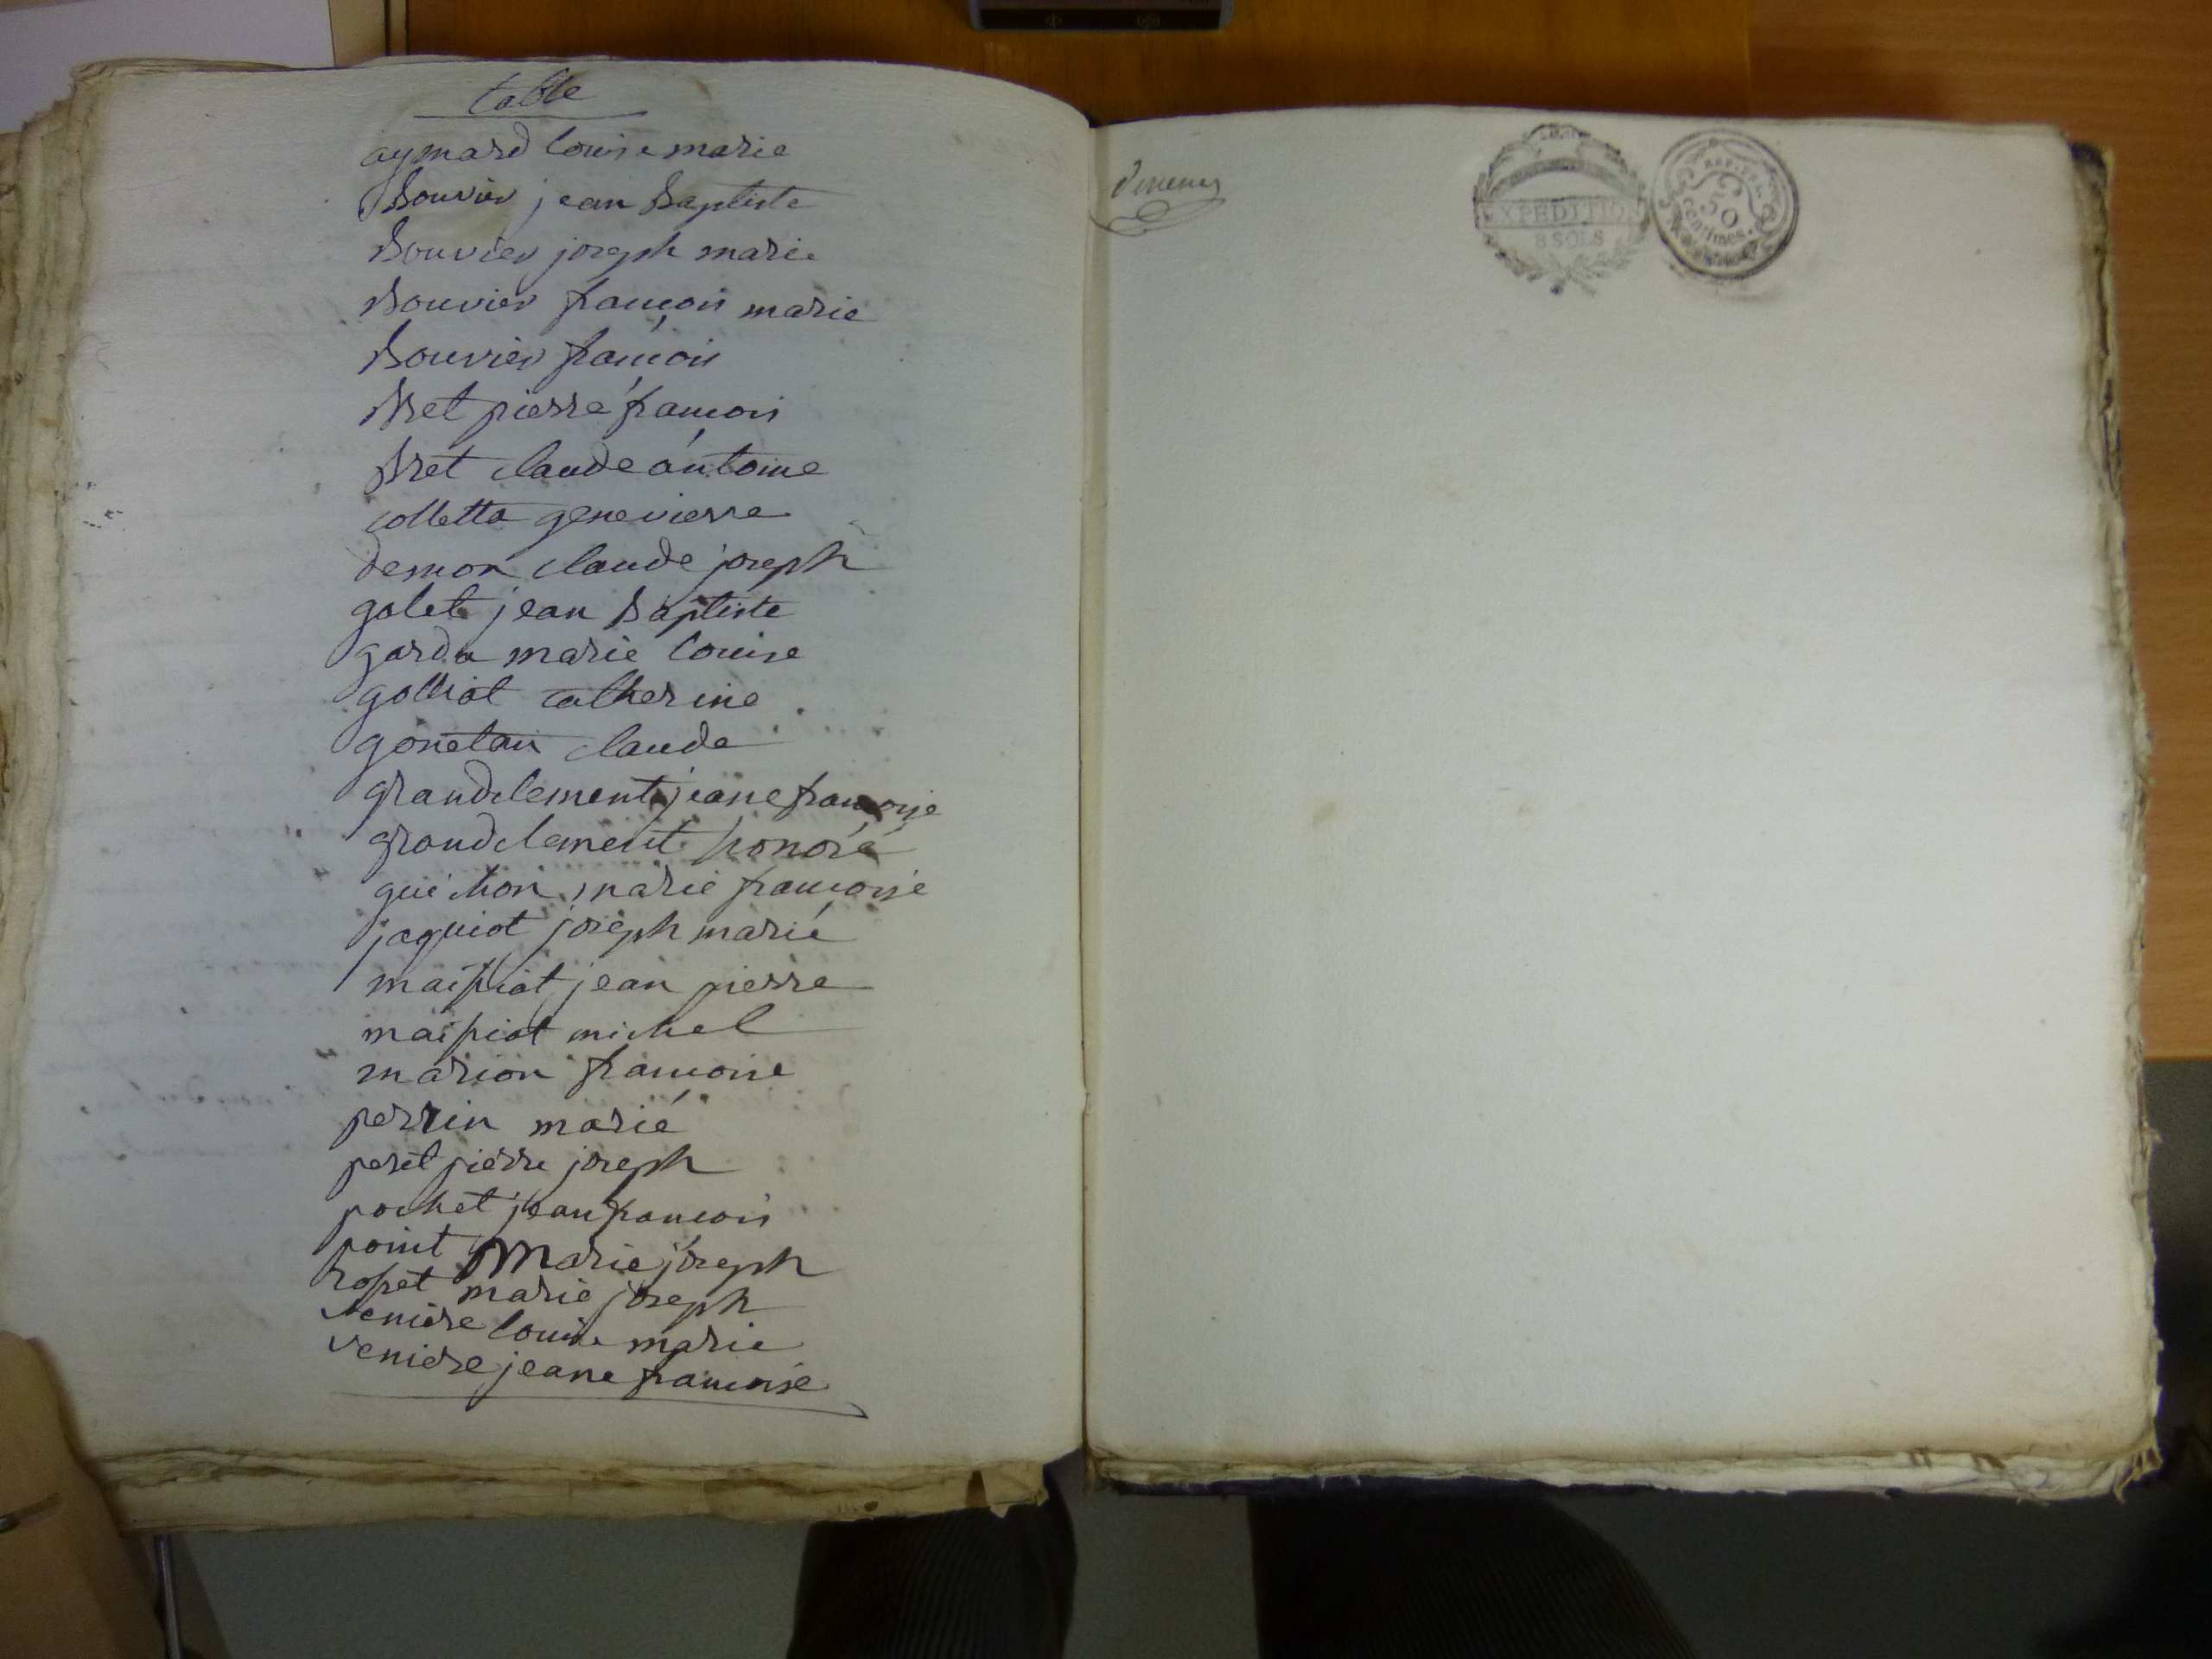 table
aymard louise marie
Bouvier jean Baptiste
Bouvier joseph marie
Bouvier francois marie
Bouvier francois
Bret pierre francois
Bret claude antoine
colletta genevieve
demon claude joseph
golet jean Baptiste
garda marie louise
golliot catherine
gonetan claude
grandclement jeane francoise
grandclement honoré
guichon marie francoise
jaquiot joseph marie
maissiat jean pierre
maissiat michel
marion francoise
perrin marie
peret pierre joseph
pochet jean francois
point Marie joseph
rosset marie joseph
veniere louise marie
veniere jeane francoise
EXPEDITION
8 SOLS
50
centimes.